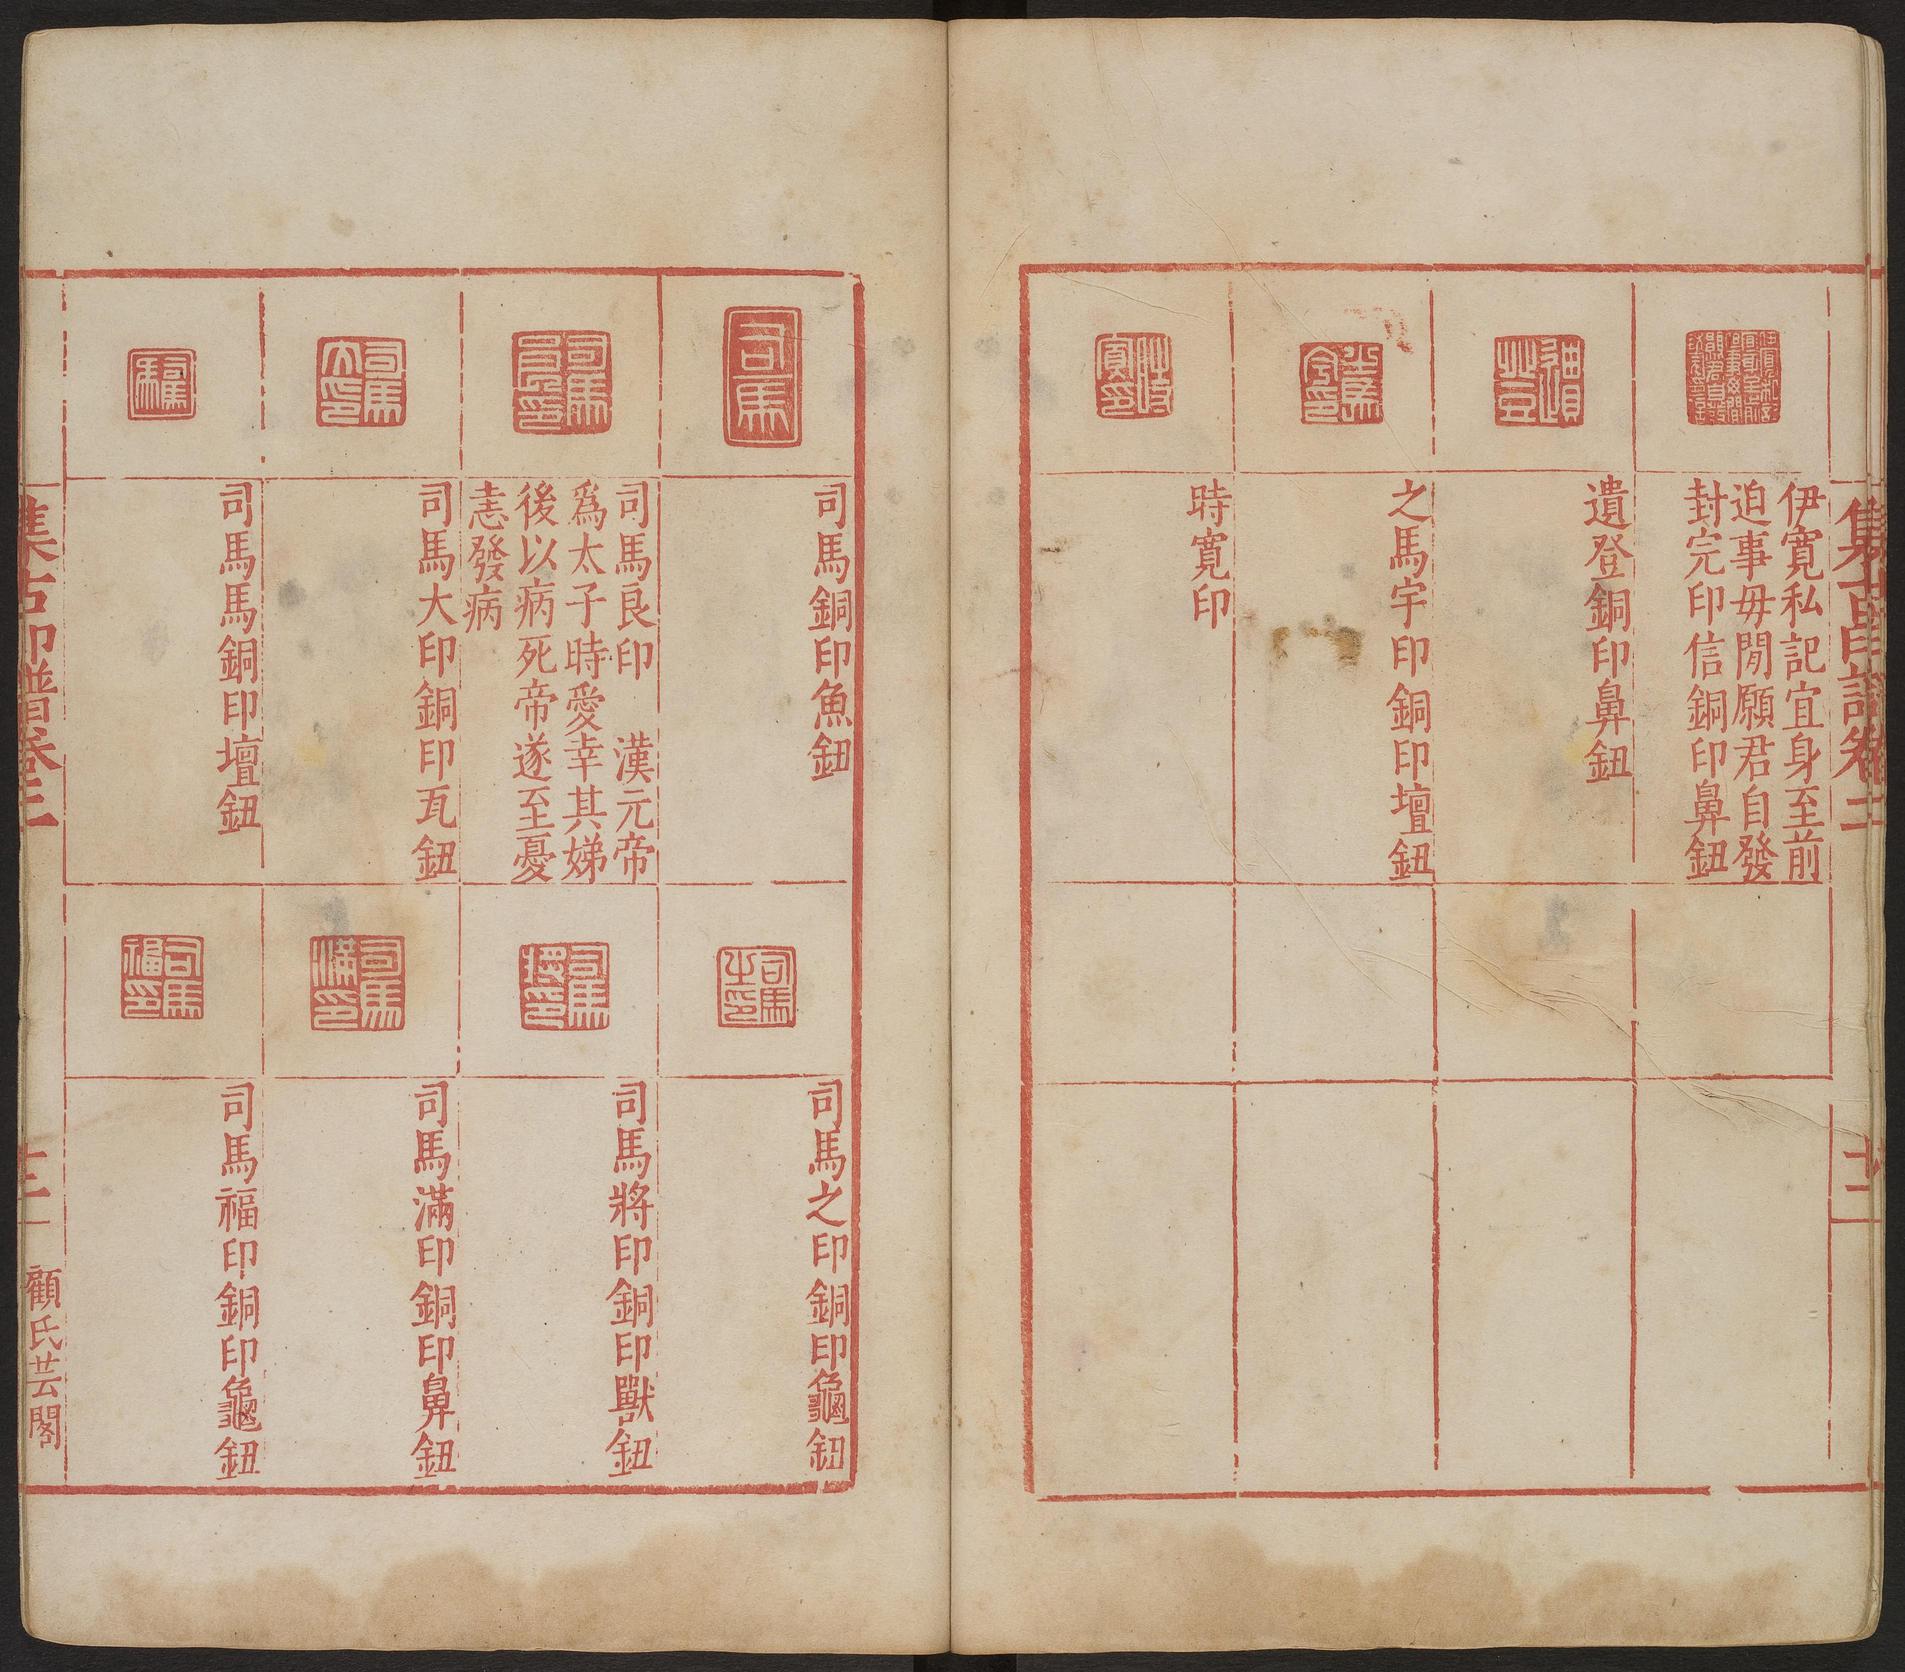 集古印譜卷二
十二
伊寬私記宜身至前
迫事毋閒願君自發
封完印信銅印鼻鈕
遺登銅印鼻鈕
之馬宇印銅印壇鈕
時寬印
司馬
司馬銅印魚鈕
司馬良印　漢元帝
爲太子時愛幸其娣
後以病死帝遂至憂
恚發病
司馬大印
司馬大印銅印瓦鈕
司馬馬銅印壇鈕
司馬之印
司馬之印銅印龜鈕
司馬將印
司馬將印銅印獸鈕
司馬滿印
司馬滿印銅印鼻鈕
司馬福印
司馬福印銅印龜鈕
集古印譜卷三
顧氏芸閣